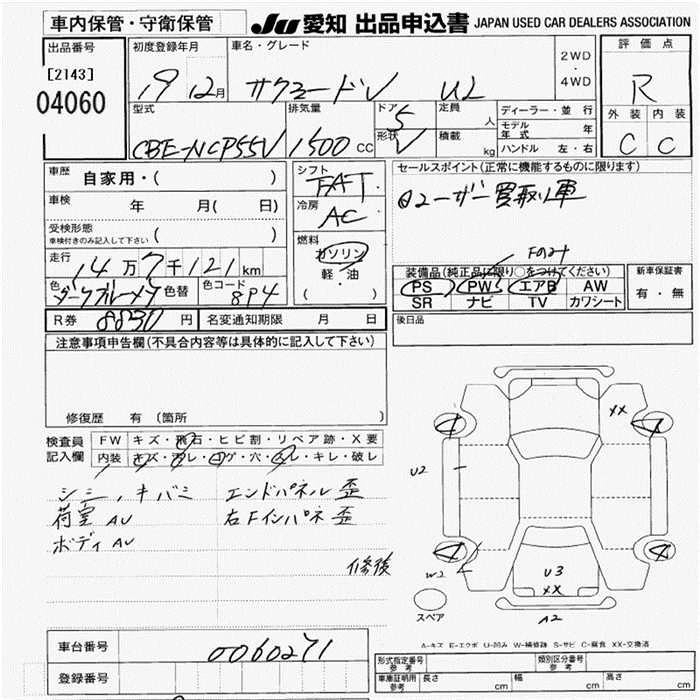 車内保管・守衛保管
JU 愛知 出品申込書 JAPAN USED CAR DEALERS ASSOCIATION
出品番号
[2143]
04060
初度登録年月
19 12月
車名・グレード
サクシードV U2
2WD
・
4WD
評価点
R
外装 内装
C C
型式
CBE-NCP55V
排気量
1500 CC
ドア 5
形状 V
定員 人
積載 kg
ディーラー・並 行
モデル年式 年
ハンドル 左・右
車歴
自家用・( )
車検 年 月( 日)
受検形態
車検付きのみ記入して下さい ( )
走行 14万7千121km
色 ダークブルーメタ 色替 色コード 8P4
R券 8830円 名変通知期限 月 日
シフト
FAT
冷房
AC
燃料
ガソリン
軽・油
( )
セールスポイント(正常に機能するものに限ります)
①ユーザー買取り車
Fのみ
装備品(純正品に限り○をつけてください)
PS PW エアB AW
SR ナビ TV カワシート
新車保証書
有・無
後日品
注意事項申告欄(不具合内容等は具体的に記入して下さい)
修復歴 有(箇所 )
検査員記入欄
FW キズ・飛石・ヒビ割・リペア跡・X要
内装 キズ・汚レ・コゲ・穴・スレ・キレ・破レ
シミ、キバミ エンドパネル歪
荷室AU 右Fインパネ歪
ボディAU
修復
XX
U2
W2
U3
XX
A2
スペア
A-キズ E-エクボ U-凹み W-補修跡 S-サビ C-腐食 XX-交換済
車台番号 0060271
登録番号
形式指定番号 参考
類別区分番号 参考
車庫証明用 参考 長さ cm 幅 cm 高さ cm